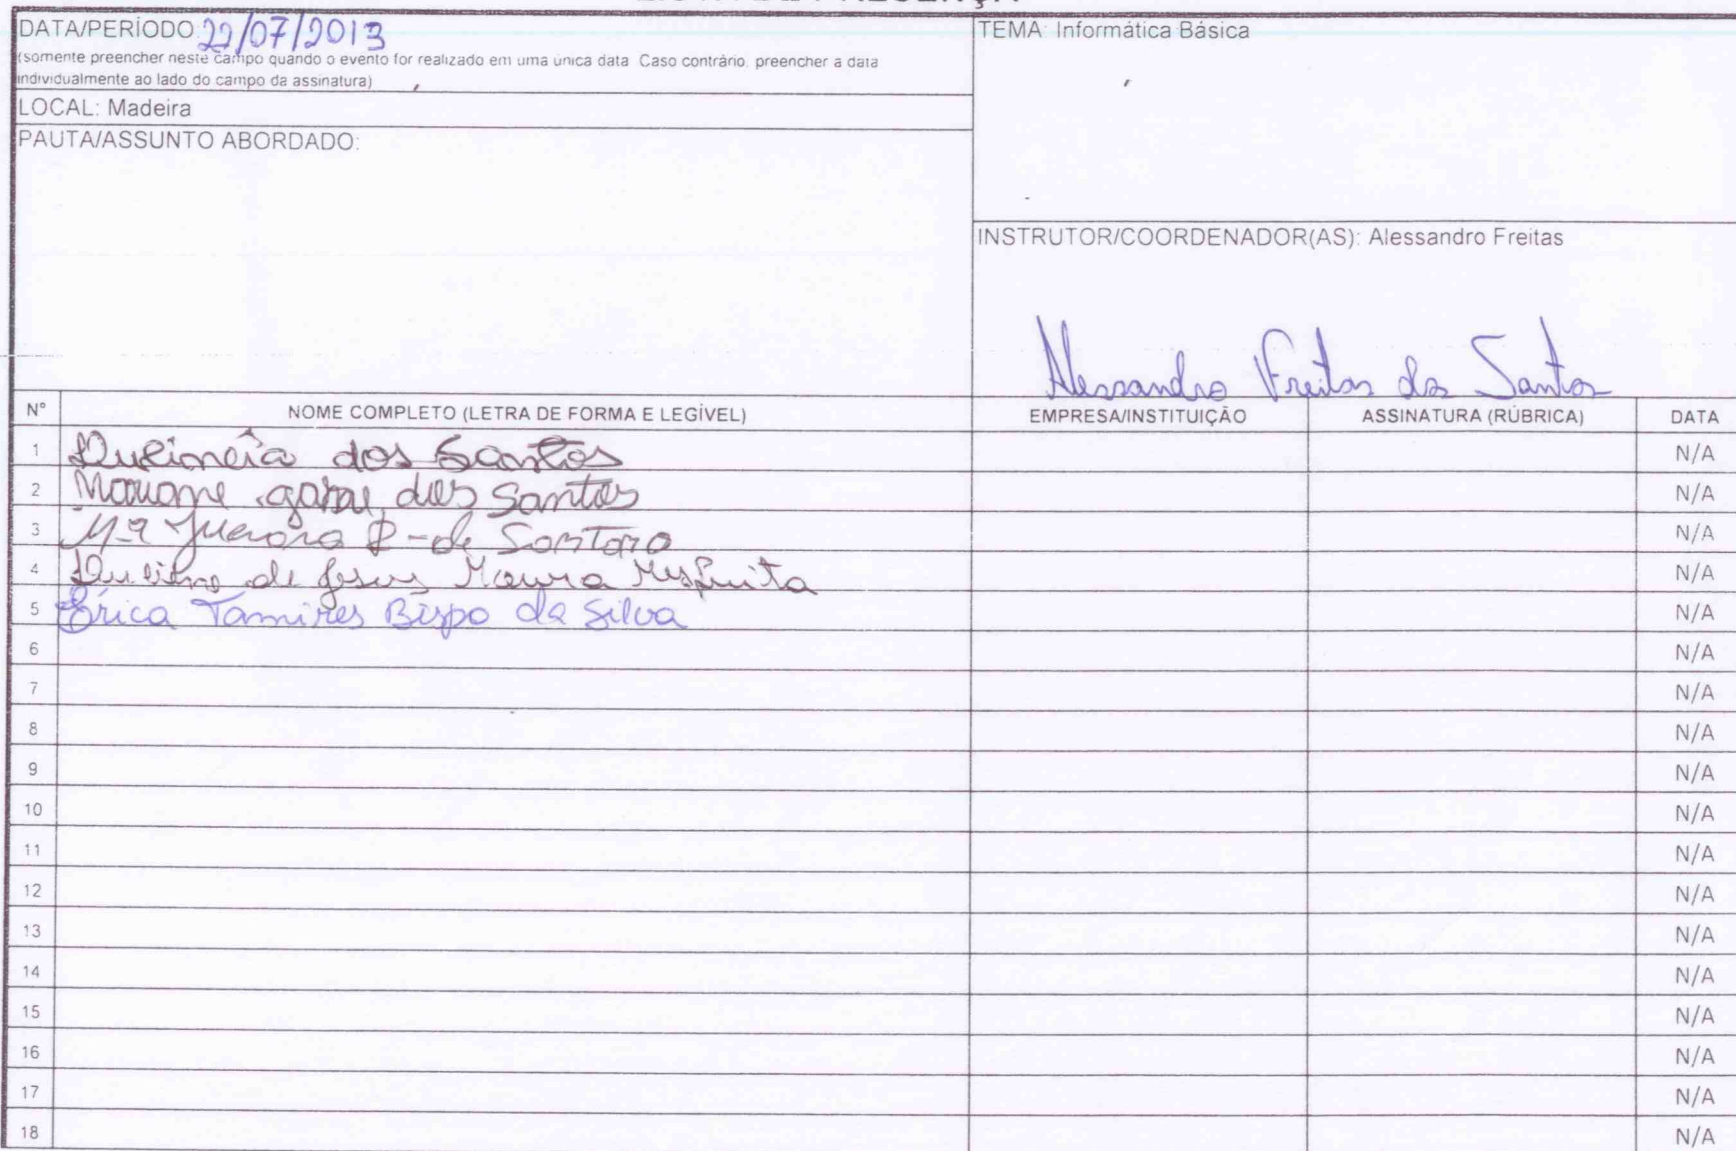 DATA/PERÍODO: 22/07/2013
(somente preencher neste campo quando o evento for realizado em uma única data. Caso contrário, preencher a data
individualmente ao lado do campo da assinatura)
LOCAL: Madeira
PAUTA/ASSUNTO ABORDADO:
TEMA: Informática Básica
INSTRUTOR/COORDENADOR(AS): Alessandro Freitas
Alessandro Freitas dos Santos
N° NOME COMPLETO (LETRA DE FORMA E LEGÍVEL) EMPRESA/INSTITUIÇÃO ASSINATURA (RÚBRICA) DATA
1 dos Santos N/A
2 dos Santos N/A
3 N/A
4 de Jesus Moura N/A
5 Érica Tamires Bispo da Silva N/A
6 N/A
7 N/A
8 N/A
9 N/A
10 N/A
11 N/A
12 N/A
13 N/A
14 N/A
15 N/A
16 N/A
17 N/A
18 N/A